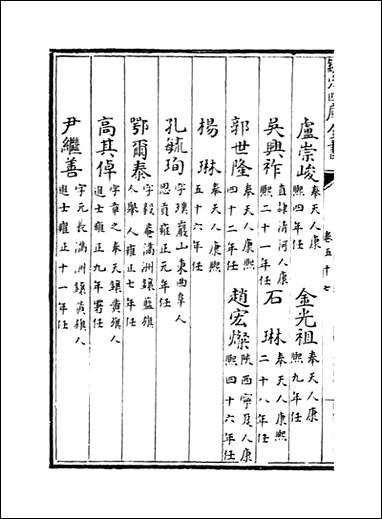 欽定四庫全書
卷五十七
盧崇峻奉天人康熙四年任 金光祖奉天人康熙九年任
吳興祚直隸清河人康熙二十一年任 石琳奉天人康熙二十八年任
郭世隆奉天人康熙四十二年任 趙宏燦陝西寧夏人康熙四十六年任
楊琳奉天人康熙五十六年任
孔毓珣字璞巖山東曲阜人恩貢雍正元年任
鄂爾泰字毅菴滿洲鑲藍旗人舉人雍正七年任
高其倬字章之奉天鑲黃旗人進士雍正九年署任
尹繼善字元長滿洲鑲黃旗人進士雍正十一年任